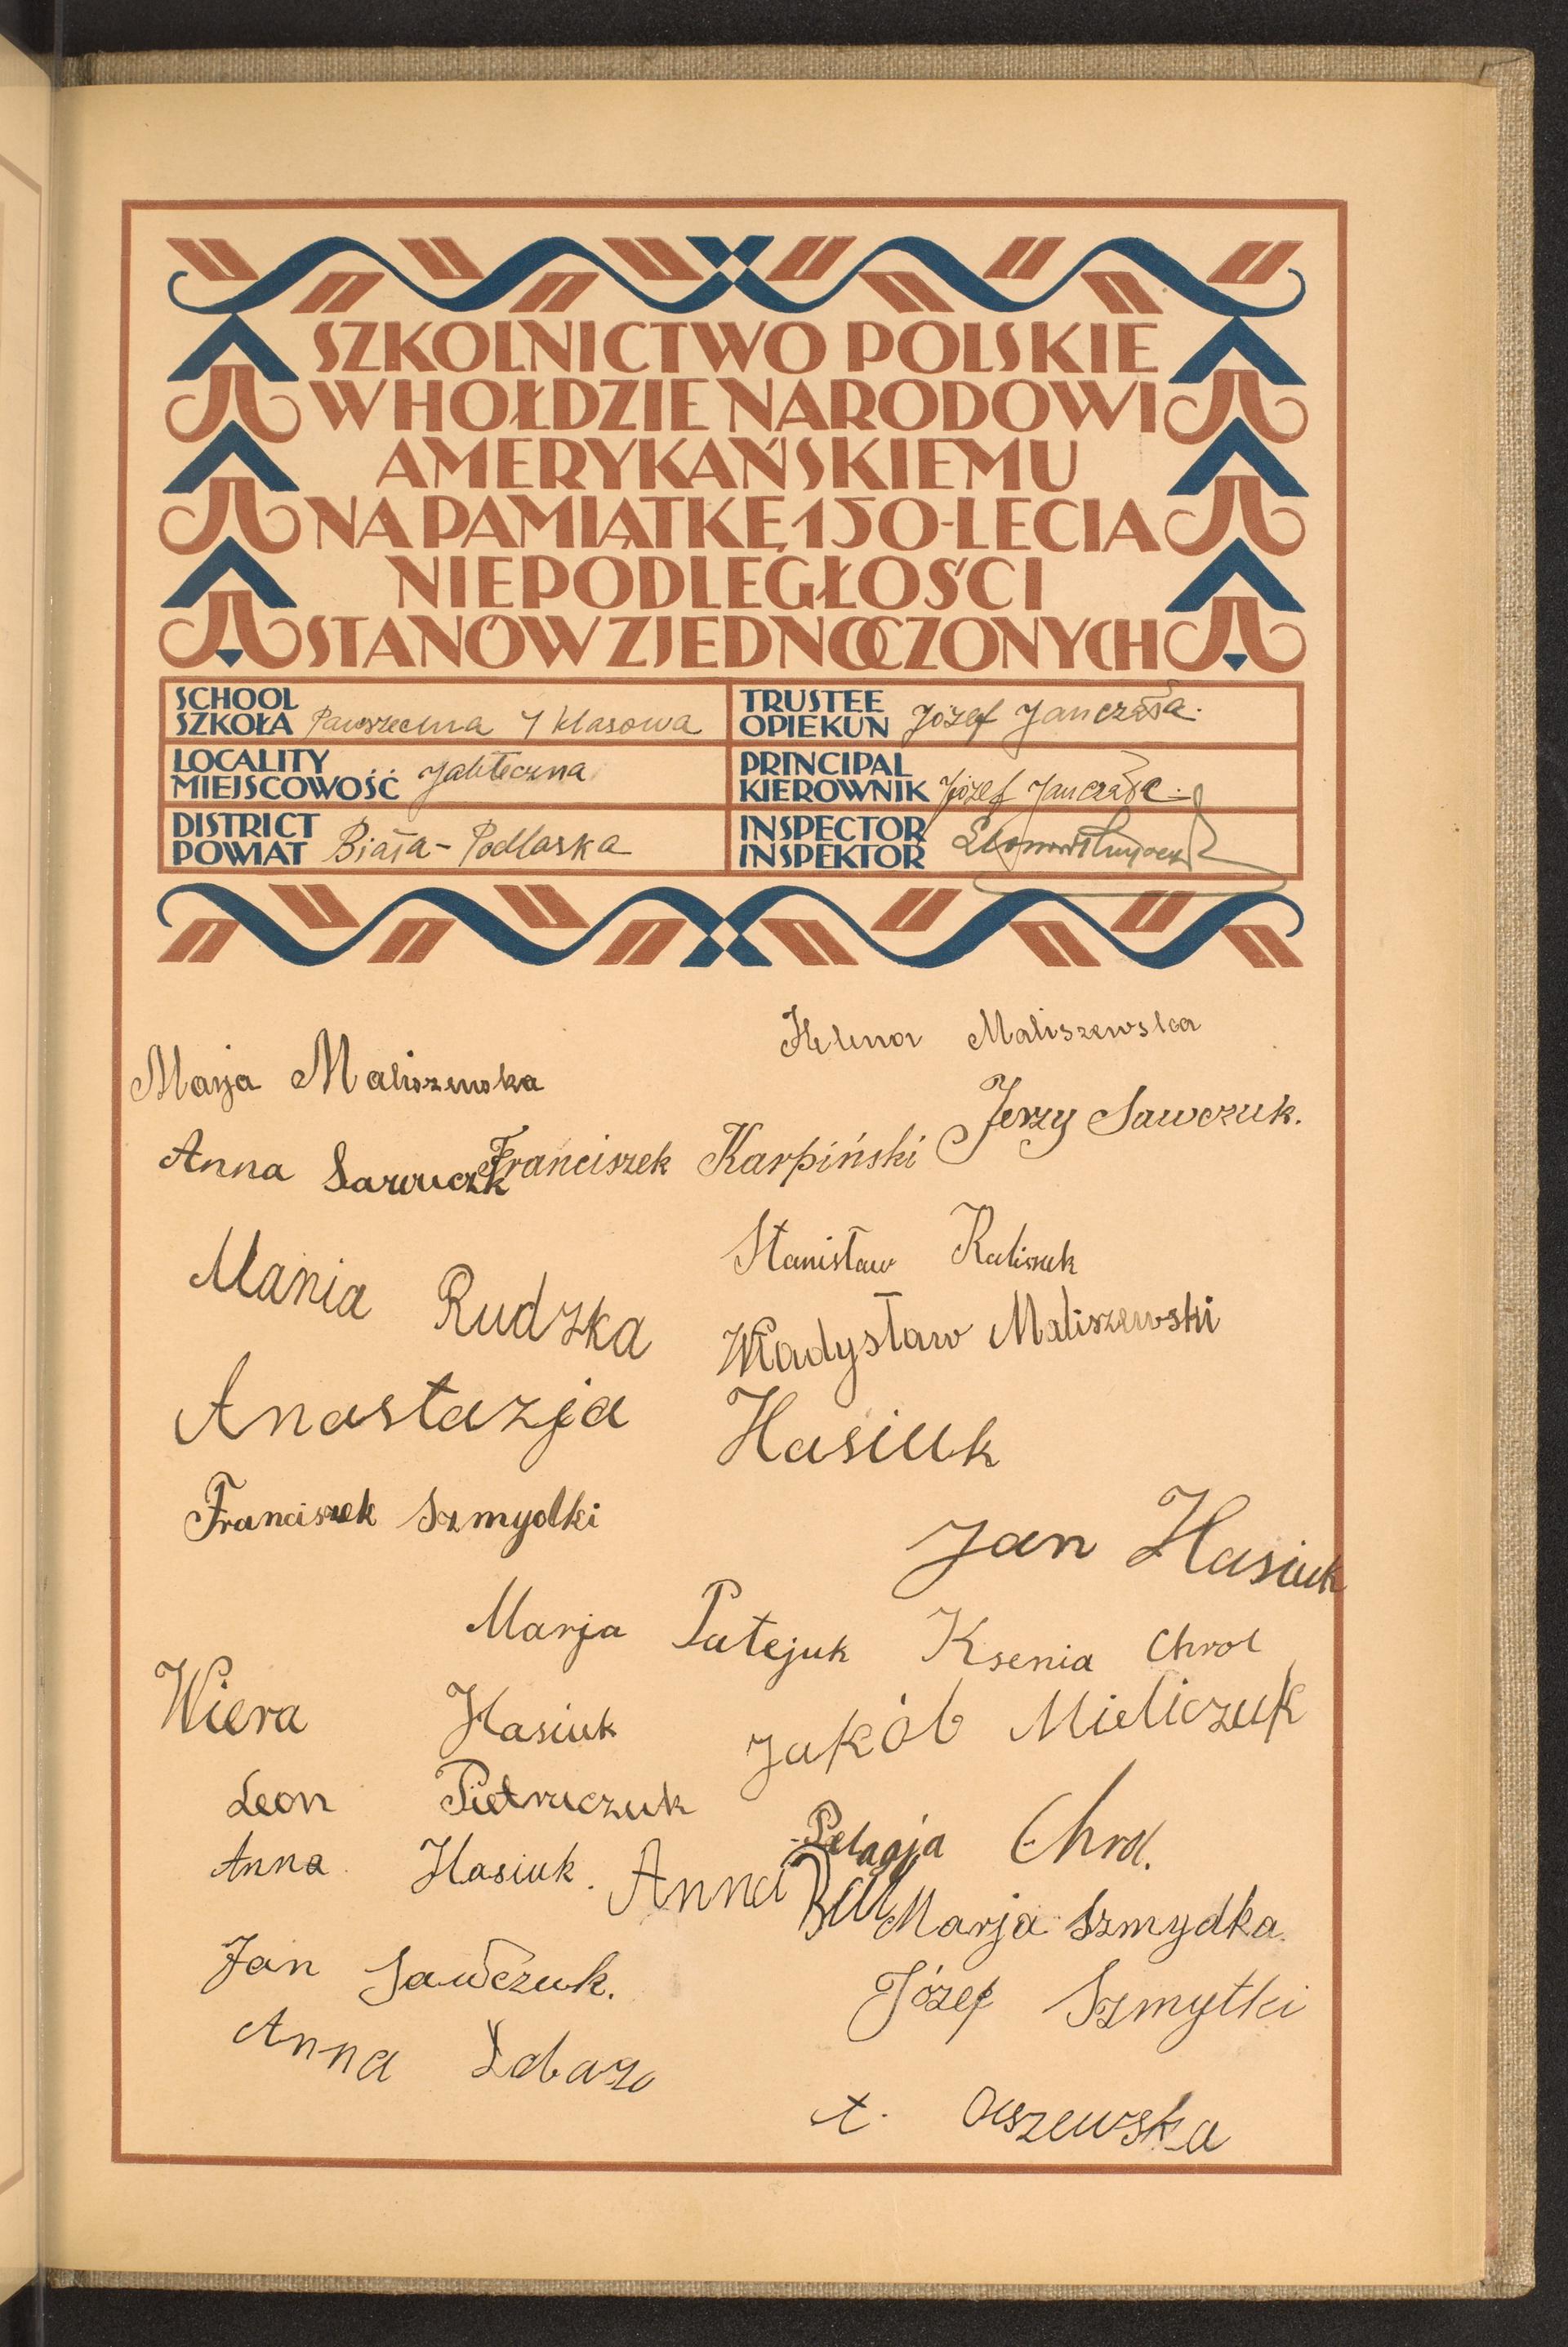 SZKOLNICTWO POLSKIE
W HOŁDZIE NARODOWI
AMERYKAŃSKIEMU
NA PAMIĄTKĘ 150-LECIA
NIEPODLEGŁOŚCI
STANÓW ZJEDNOCZONYCH
SCHOOL
SZKOŁA Powszechna 1 klasowa
TRUSTEE
OPIEKUN Józef
LOCALITY
MIEJSCOWOŚĆ Jabłeczna
PRINCIPAL
KIEROWNIK Józef
DISTRICT
POWIAT Biała-Podlaska
INSPECTOR
INSPEKTOR
Helena Maliszewska
Marja Maliszewska
Jerzy Sawczuk.
Anna Sawuczk
Franciszek Karpiński
Stanisław Kaliszuk
Mania Rudzka
Władysław Maliszewski
Anastazja Hasiuk
Franciszek Szmydki
Jan Hasiuk
Marja Patejuk
Ksenia Chrol
Wiera Hasiuk
Jakób Mieliczuk
Leon Pietruczuk
Pelagja Chrol.
Anna Hasiuk.
Anna
Marja Szmydka.
Jan Sawczuk.
Józef Szmytki
Anna